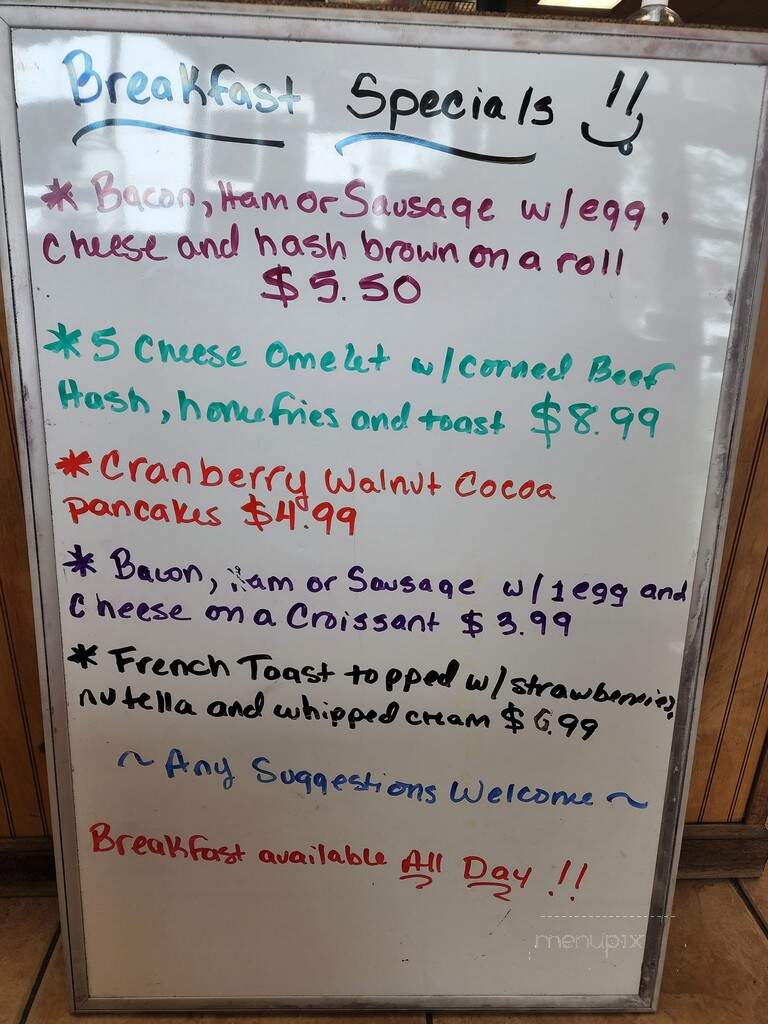 Breakfast Specials !!
* Bacon, Ham or Sausage w/egg,
cheese and hash brown on a roll
$5.50
* 5 Cheese Omelet w/corned Beef
Hash, homefries and toast $8.99
* Cranberry Walnut Cocoa
pancakes $4.99
* Bacon, Ham or Sausage w/1 egg and
Cheese on a Croissant $3.99
* French Toast topped w/strawberries,
nutella and whipped cream $6.99
~ Any Suggestions Welcome ~
Breakfast available All Day !!
menupix